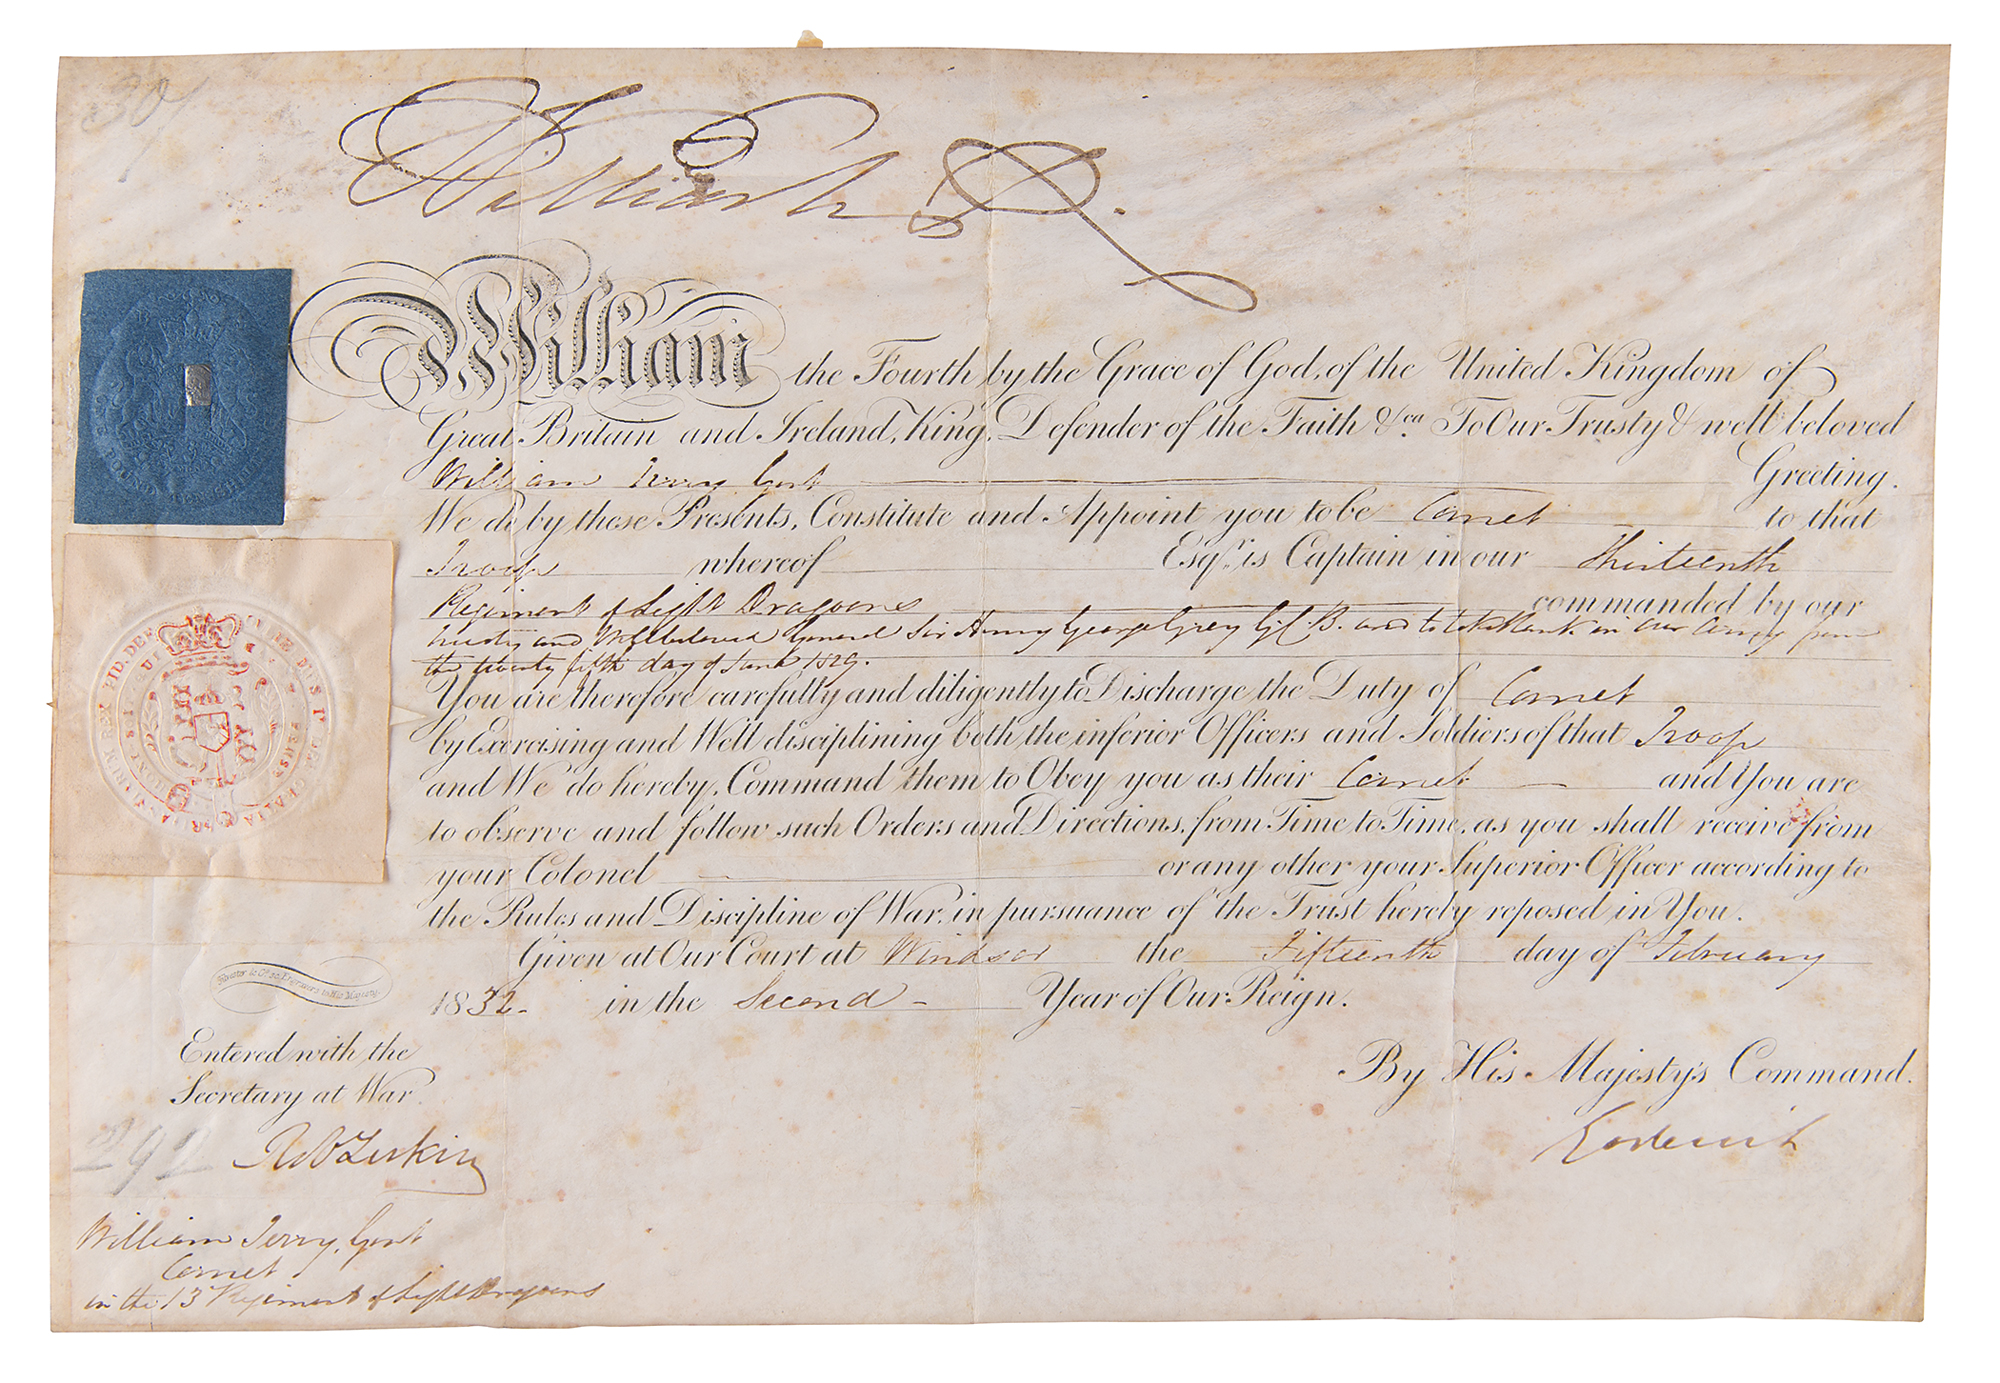 30/
William R.
William the Fourth by the Grace of God, of the United Kingdom of
Great Britain and Ireland, King, Defender of the Faith &ca. To Our Trusty & well beloved
William Terry Gent Greeting.
We do by these Presents, Constitute and Appoint you to be Cornet to that
Troop whereof Esqr. is Captain in our Thirteenth
Regiment of Light Dragoons commanded by our
trusty and Wellbeloved General Sir Henry George Grey G.C.B. and to take Rank in our Army from
the twenty fifth day of June 1829.
You are therefore carefully and diligently to Discharge the Duty of Cornet
by Exercising and Well disciplining both the inferior Officers and Soldiers of that Troop
and We do hereby, Command them to Obey you as their Cornet and You are
to observe and follow such Orders and Directions, from Time to Time, as you shall receive from
your Colonel or any other your Superior Officer according to
the Rules and Discipline of War, in pursuance of the Trust hereby reposed in You.
Given at Our Court at Windsor the Fifteenth day of February
1832- in the Second - Year of Our Reign.
By His Majesty's Command.
Goderich
Engravers to His Majesty.
Entered with the
Secretary at War.
292
William Terry, Gent
Cornet
in the 13 Regiment of Light Dragoons